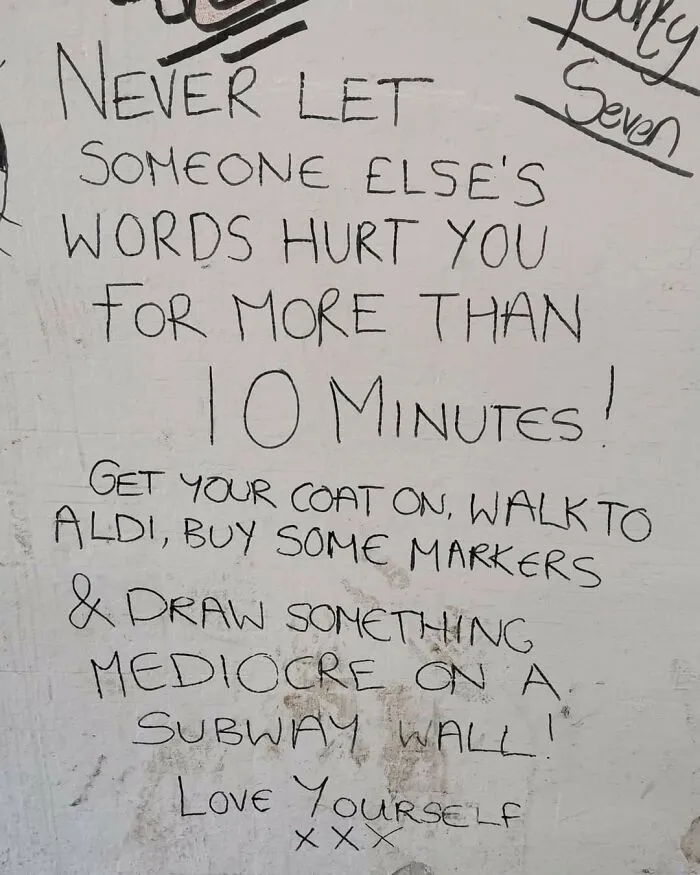 Seven
NEVER LET
SOMEONE ELSE'S
WORDS HURT YOU
FOR MORE THAN
10 MINUTES!
GET YOUR COAT ON, WALK TO
ALDI, BUY SOME MARKERS
& DRAW SOMETHING
MEDIOCRE ON A
SUBWAY WALL!
LOVE YOURSELF
XXX